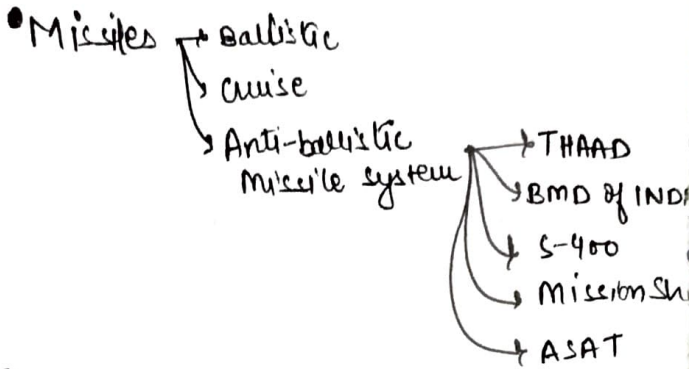 • Missiles → Ballistic
→ cruise
→ Anti-ballistic
missile system → THAAD
→ BMD of INDI
→ S-400
→ Mission Sh
→ ASAT